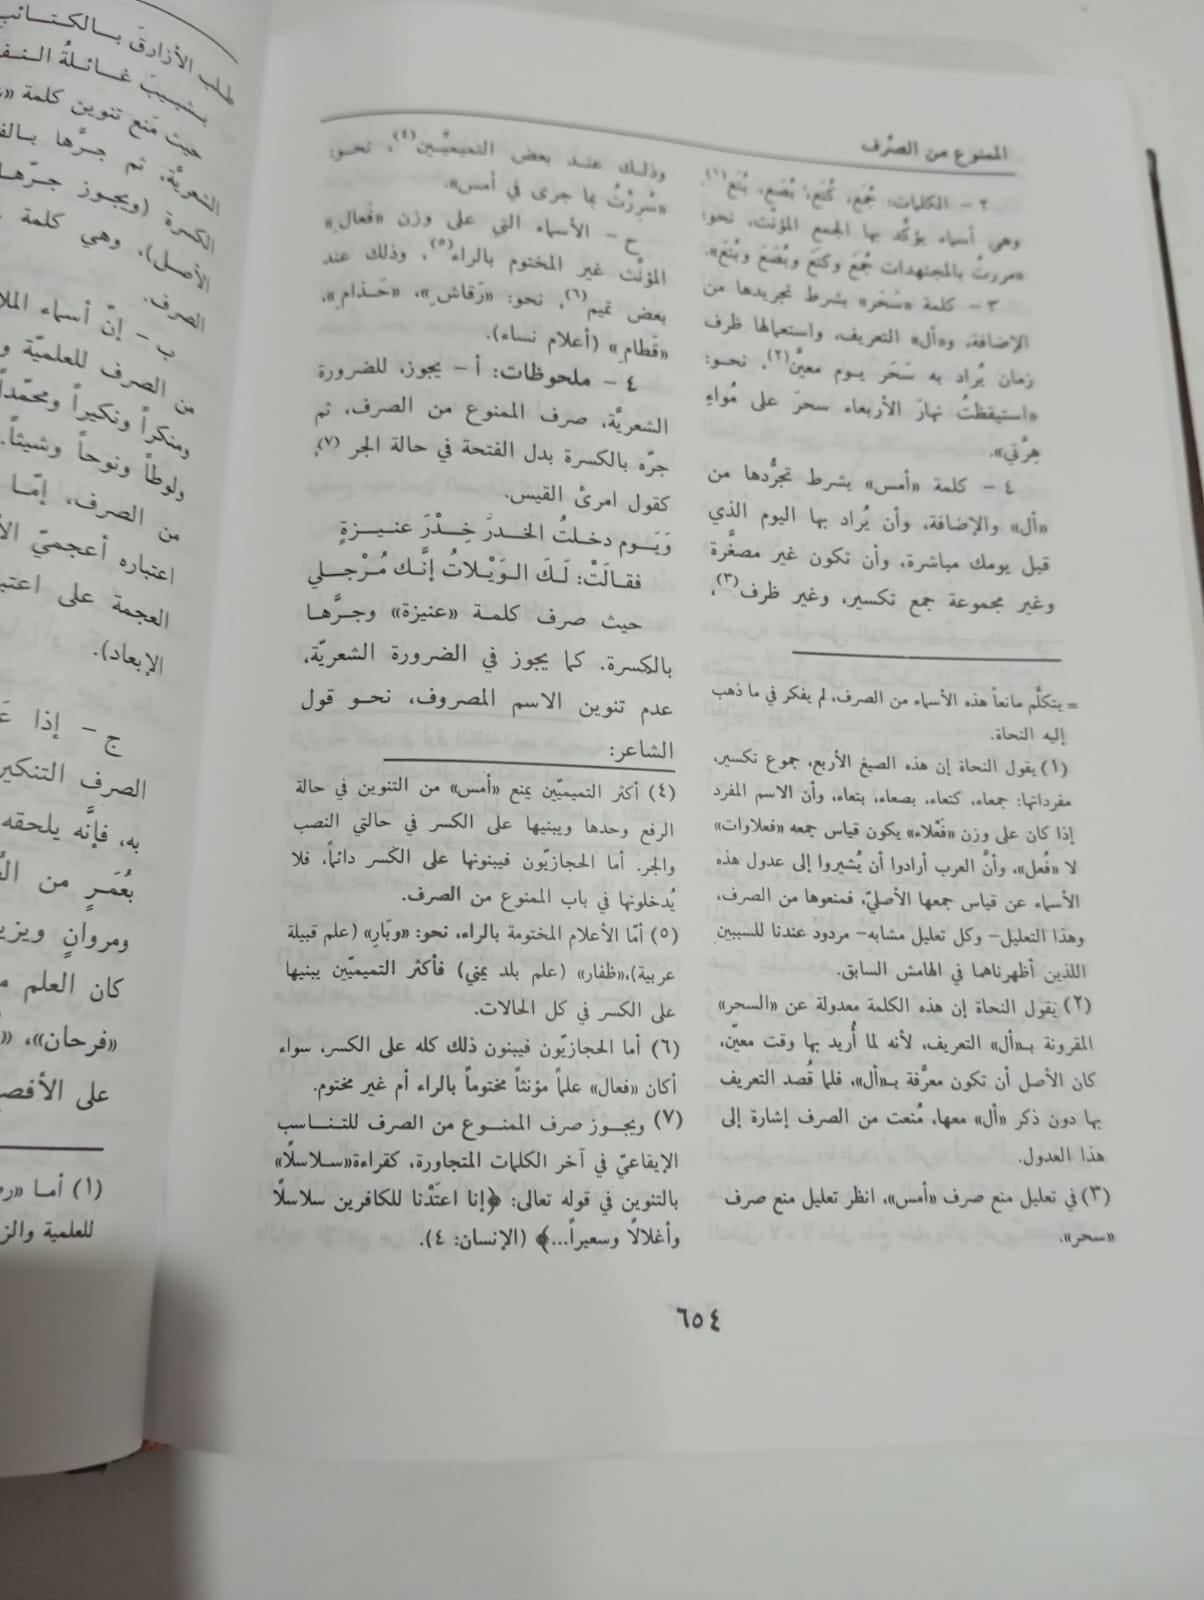 الممنوع من الصَّرف
٢ - الكلمات: جُمَع، كُتَع، بُصَع، بُتَع(١)،
وهي أسماء يؤكَّد بها الجمع المؤنَّث، نحو:
«مررتُ بالمجتهدات جُمَعَ وكتَعَ وبُصَعَ وبُتَعَ».
٣ - كلمة «سَحَر» بشرط تجريدها من
الإضافة، و«أل» التعريف، واستعمالها ظرف
زمان يُراد به سَحَر يوم معيَّن(٢)، نحو:
«استيقظتُ نهارَ الأربعاء سحرَ على مُواءِ
هِرَّتي».
٤ - كلمة «أمس» بشرط تجرُّدها من
«أل» والإضافة، وأن يُراد بها اليوم الذي
قبل يومك مباشرة، وأن تكون غير مصغَّرة
وغير مجموعة جمع تكسير، وغير ظرف(٣)،
= يتكلَّم مانعاً هذه الأسماء من الصرف، لم يفكر في ما ذهب
إليه النحاة.
(١) يقول النحاة إن هذه الصيغ الأربع، جموع تكسير،
مفرداتها: جمعاء، كتعاء، بصعاء، بتعاء، وأن الاسم المفرد
إذا كان على وزن «فَعْلاء» يكون قياس جمعه «فعلاوات»
لا «فُعل»، وأنَّ العرب أرادوا أن يُشيروا إلى عدول هذه
الأسماء عن قياس جمعها الأصليّ، فمنعوها من الصرف،
وهذا التعليل- وكل تعليل مشابه- مردود عندنا للسببين
اللذين أظهرناهما في الهامش السابق.
(٢) يقول النحاة إن هذه الكلمة معدولة عن «السحر»
المقرونة بـ«أل» التعريف، لأنه لما أُريد بها وقت معيّن،
كان الأصل أن تكون معرَّفة بـ«أل»، فلما قُصد التعريف
بها دون ذكر «أل» معها، مُنعت من الصرف إشارة إلى
هذا العدول.
(٣) في تعليل منع صرف «أمس»، انظر تعليل منع صرف
«سحر».
وذلك عند بعض التميميَّين(٤)، نحو:
«سُرِرْتُ بما جرى في أمسَ».
ح - الأسماء التي على وزن «فَعالِ»
المؤنَّث غير المختوم بالراء(٥)، وذلك عند
بعض تميم(٦)، نحو: «رَقاشِ»، «حَذامِ»،
«قَطامِ» (أعلام نساء).
٤ - ملحوظات: أ - يجوز، للضرورة
الشعريَّة، صرف الممنوع من الصرف، ثم
جرّه بالكسرة بدل الفتحة في حالة الجر (٧)،
كقول امرئ القيس.
وَيَوم دخلتُ الخدرَ خِدْرَ عنيزةٍ
فقالَتْ: لَكَ الوَيْلاتُ إنَّك مُرْجلي
حيث صرف كلمة «عنيزة» وجرَّها
بالكسرة. كما يجوز في الضرورة الشعريّة،
عدم تنوين الاسم المصروف، نحو قول
الشاعر:
(٤) أكثر التميميّين يمنع «أمس» من التنوين في حالة
الرفع وحدها ويبنيها على الكسر في حالتي النصب
والجر. أما الحجازيّون فيبنونها على الكسر دائماً، فلا
يُدخلونها في باب الممنوع من الصرف.
(٥) أمّا الأعلام المختومة بالراء، نحو: «وبَارِ» (علم قبيلة
عربية)،«ظفار» (علم بلد يمني) فأكثر التميميّين يبنيها
على الكسر في كل الحالات.
(٦) أما الحجازيّون فيبنون ذلك كله على الكسر، سواء
أكان «فعال» علماً مؤنثاً مختوماً بالراء أم غير مختوم.
(٧) ويجوز صرف الممنوع من الصرف للتناسب
الإيقاعيّ في آخر الكلمات المتجاورة، كقراءة«سلاسلًا»
بالتنوين في قوله تعالى: ﴿إنا اعتَدْنا للكافرين سلاسلًا
وأغلالًا وسعيراً...﴾ (الإنسان: ٤).
٦٥٤
طلب الأزارقَ بالكتائب
بشبيبَ غائلةُ
حيث مَنع تنوين كلمة
الشعريَّة، ثم جرَّها
الكسرة (ويجوز جرّها
الأصل)، وهي كلمة
الصرف.
ب - إنّ أسماء
من الصرف للعلميّة
ومنكراً ونكيراً ومحمّداً
ولوطاً ونوحاً وشيثاً.
من الصرف، إمّا
اعتباره أعجميّ
العجمة على
الإبعاد).
ج - إذا
الصرف
به، فإنَّه يلحقه
بعُمَرٍ من
ومروانٍ
كان العلم
«فرحان»،
على
(١) أما
للعلمية